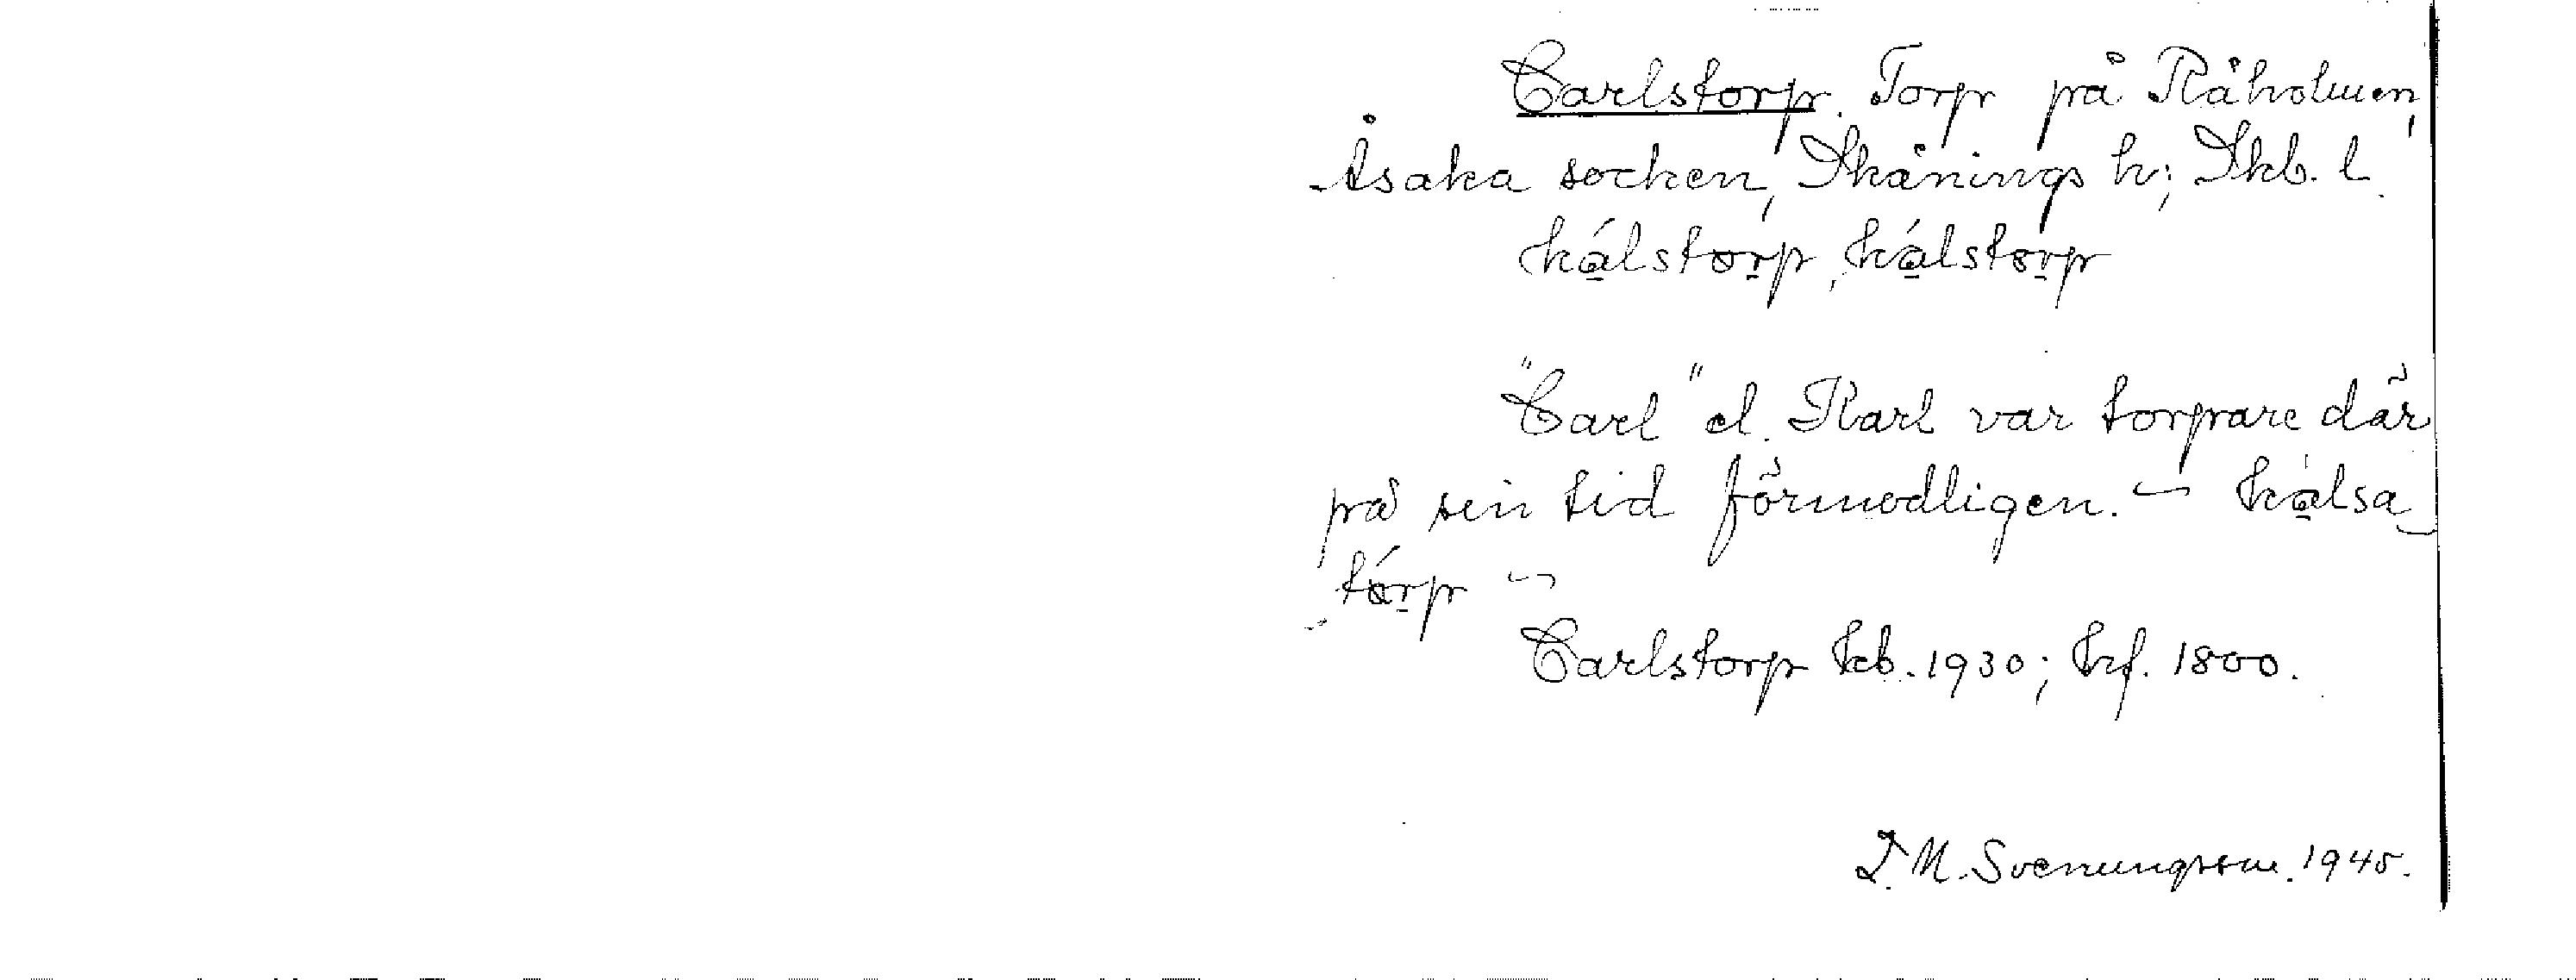 Carlstorp. Torp på Råholmen,
Åsaka socken, Skånings h; Skb. l.
kálstorp, kálstorp
"Carl" el. Karl var torpare där
på sin tid förmodligen. ~ kalsa
tórp ~
Carlstorp kb. 1930; hf. 1800.
I. M. Svenungsson. 1945.